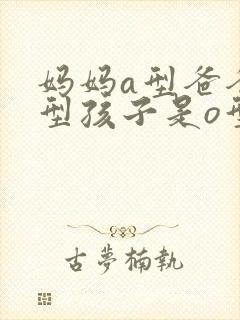 妈妈a型爸爸
型孩子是o型
古夢楠執